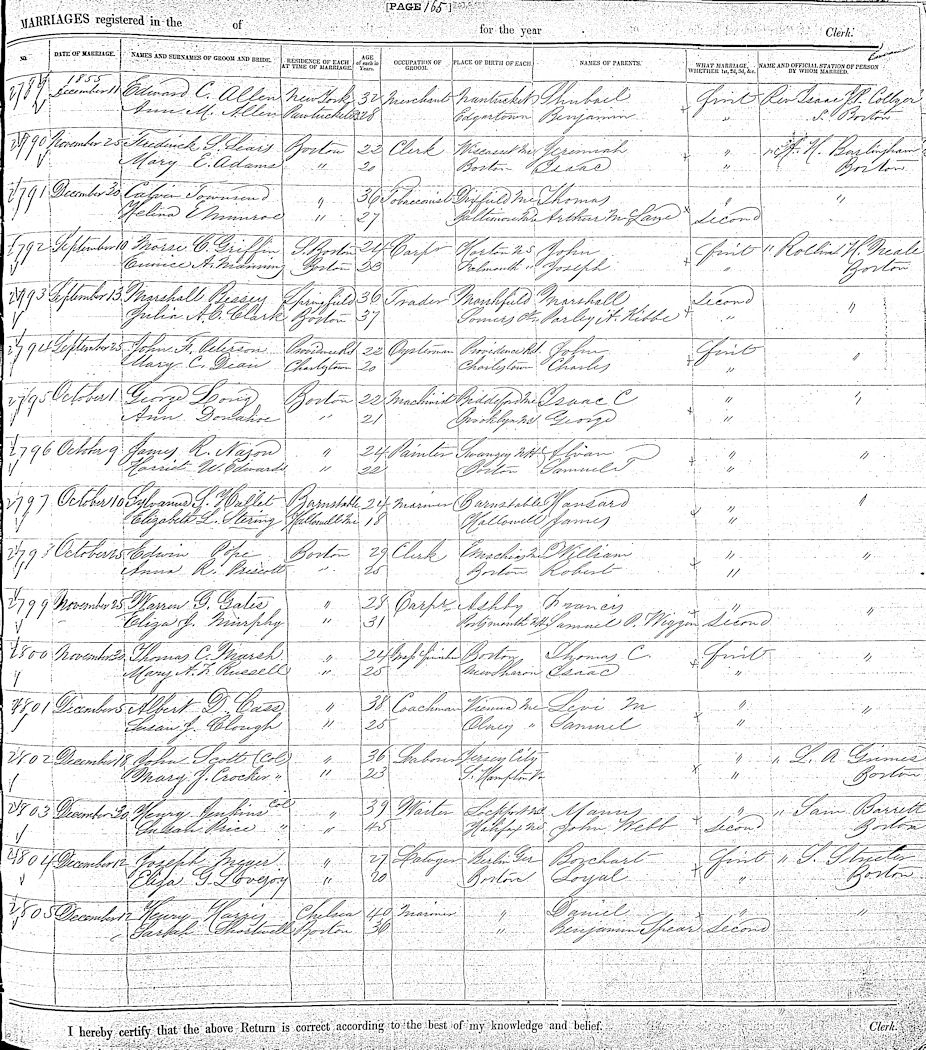 [PAGE 165]
MARRIAGES registered in the of for the year Clerk.
No. DATE OF MARRIAGE. NAMES AND SURNAMES OF GROOM AND BRIDE. RESIDENCE OF EACH AT TIME OF MARRIAGE. AGE of each in Years. OCCUPATION OF GROOM. PLACE OF BIRTH OF EACH. NAMES OF PARENTS. WHAT MARRIAGE, WHETHER 1st, 2d, 3d, &c. NAME AND OFFICIAL STATION OF PERSON BY WHOM MARRIED.
1855
2789 December 11 Edward C. Allen New York 32 Merchant Nantucket Shubael first Rev Isaac
Ann M. Allen 28 Edgartown Benjamin " S. Boston
2790 November 25 Frederick S. Sears Boston 22 Clerk Wiscasset Me Jeremiah " " A. H. Burlingham
Mary E. Adams " 20 Boston Isaac " Boston
2791 December 30 Calvin Townsend " 36 Tobacconist Dixfield Me Thomas " "
Helena Munroe " 27 Baltimore Md Arthur McLane second
2792 September 10 Morse C. Griffin S. Boston 24 Carp Horton NS John first " Rollin H. Neale
Eunice A. Manning Boston 23 Falmouth " Joseph " Boston
2793 September 13 Marshall Bessey Springfield 36 Trader Marshfield Marshall second "
Julia A. C. Clark Boston 37 Somers Ct Parley A. Kibbe "
2794 September 25 John F. Peterson Providence RI 22 Oysterman Providence RI John first "
Mary C. Dean Charlestown 20 Charlestown Charles "
2795 October 1 George Long Boston 22 Machinist Biddeford Me Isaac C " "
Ann Donahoe " 21 Brooklyn NY George "
2796 October 9 James R. Nason " 24 Painter Swanzey NH Alvan " "
Harriet W. Edwards " 22 Boston Samuel T "
2797 October 10 Sylvanus S. Hallet Barnstable 24 Mariner Barnstable " "
Elizabeth L. Hallowell Me 18 Hallowell James "
2798 October 25 Edwin Pope Boston 29 Clerk Machias Me William " "
Anna R. Priscott " 25 Boston Robert "
2799 November 25 Warren G. Gates " 28 Carpr Ashby Francis " "
Eliza J. Murphy " 31 Portsmouth NH Samuel P. Wiggin second
2800 November 30 Thomas C. Marsh " 24 Boston Thomas C. first "
Mary A. F. Russell " 25 New Sharon Isaac "
2801 December 5 Albert D. Cass " 38 Coachman Vienna Me Levi M " "
Susan J. Clough " 25 Olney " Samuel "
2802 December 18 John Scott (Col) " 36 Labour Jersey City " " L. A. Grimes
Mary J. Crocker " " 23 " Boston
2803 December 30 Henry Jenkins Col " 39 Waiter Lockport NY Manny " " Sam Barrett
Susan Price " " 45 John Webb second Boston
2804 December 12 Joseph " 27 Berlin Ger Borchart first " S. Streeter
Eliza G. Lovejoy " 20 Boston Loyal " Boston
2805 December 12 Henry Harris Chelsea 40 Mariner " Daniel " "
Sarah Shortwell Boston 36 " Benjamin Spear second
I hereby certify that the above Return is correct according to the best of my knowledge and belief. Clerk.